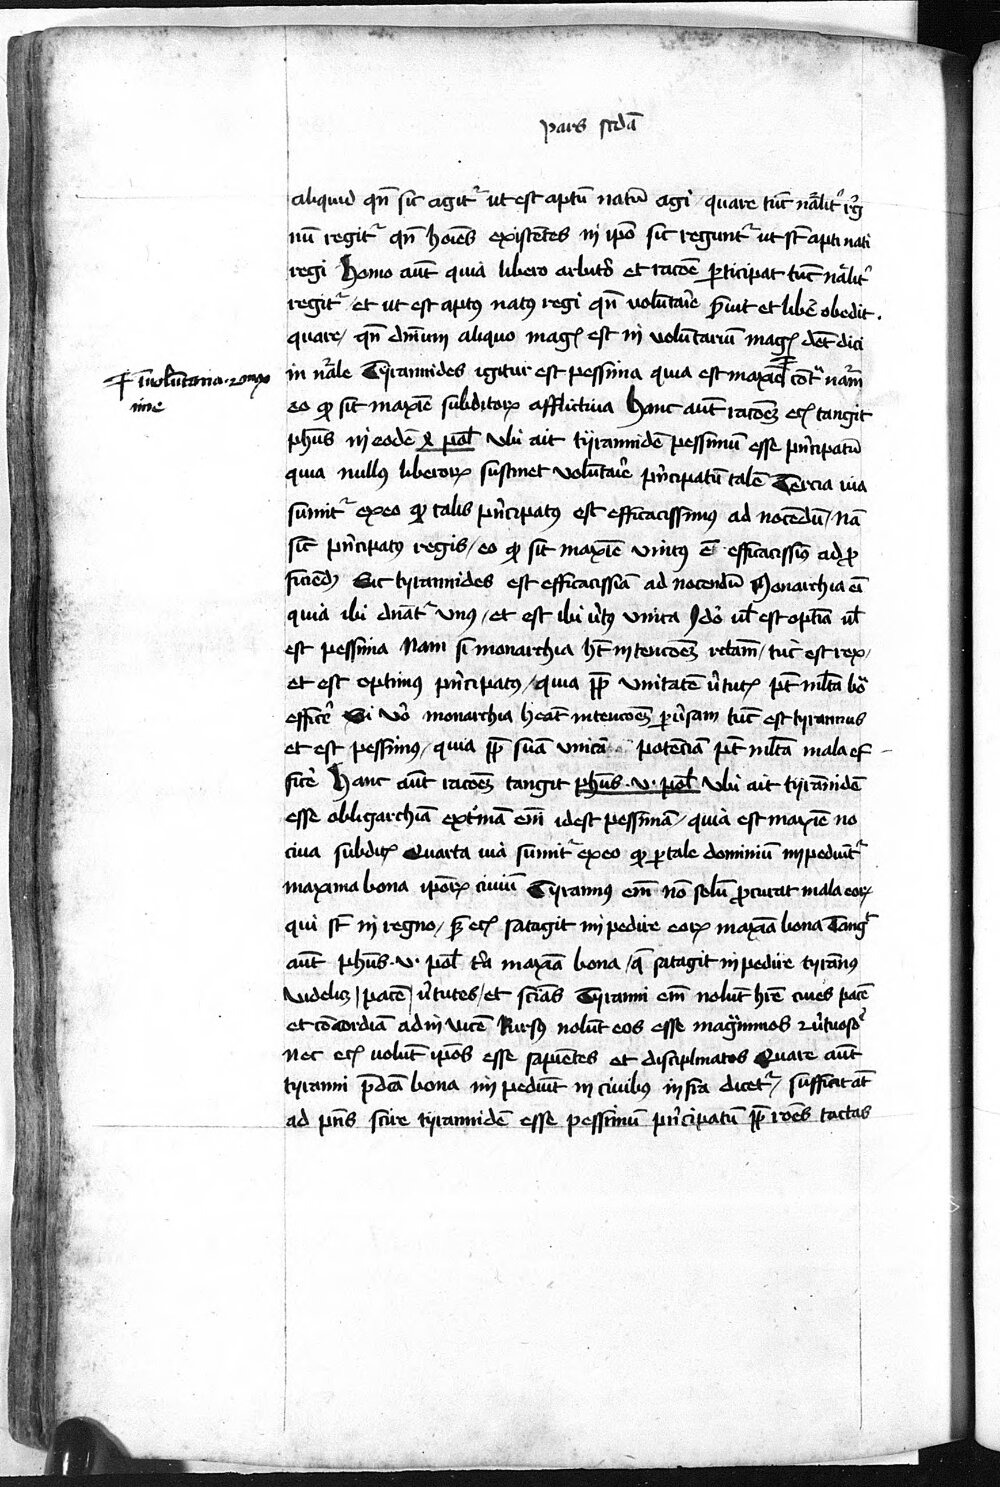 pars scda
aliquid qn sic agitr ut est aptu natu agi / quare tuc nalitr reg
nu regitr qn hoies existetes in ipo sic reguntr ut st apti nati
regi Homo aut quia libero arbitrio et racoe participat tuc nalitr
regitr / et ut est aptus natus regi qn voluntarie servit et libere obedit .
quare / qn dnium aliquo magis est in voluntarium magis det dici
in nrale Tyrannides igitur est pessima quia est maxie cont nam
Involuntaria . z maxi
me
eo q sit maxie subditorum afflictiva Hanc aut racoem eciam tangit
phus in eode x pol Ubi ait tyrannide pessimu esse principatu
quia nullus liberorum sustinet voluntarie principatu tale Tercia via
sumitr ex eo q talis principatus est efficacissimus ad nocedu / Na
sicut principatus regis / eo q sit maxie unitus est efficacissimus ad pro
ficiend Sic tyrannides est efficacissia ad nocendu Monarchia ei
quia ibi dnatr unus / et est ibi virtus unita Ido vel est optia vel
est pessima Nam si monarchia ht intencoem rctam / tuc est rex /
et est optimus principatus / quia pp unitate virtutis pt mlta bo
efficere Si vo monarchia heat intencoem pversam tuc est tyrannus
et est pessimus / quia pp sua unica potencia pt mlta mala ef
ficere Hanc aut racoem tangit phus . v . pol Ubi ait tyrannide
esse obligarchia extima em idest pessima / quia est maxie no
civa subditis Quarta via sumitr ex eo q p tale dominiu inpediuntr
maxima bona iporum civiu Tyrannus em no solu procurat mala eorum
qui st in regno / s eciam satagit inpedire eorum maxia bona Tangit
aut phus . v . pol tria maxia bona / q satagit inpedire tyranus
videlicet / pace / virtutes / et scias Tyranni em nolunt hre cives pace
et cocordia adinvice Rursus nolut eos esse magnimos z virtuosos
Nec eciam volunt ipos esse sapientes et disciplinatos Quare aut
tyranni pdca bona inpediunt in civibus infra dicetr / sufficit at
ad pns scire tyrannide esse pessimu principatu pp roes tactas